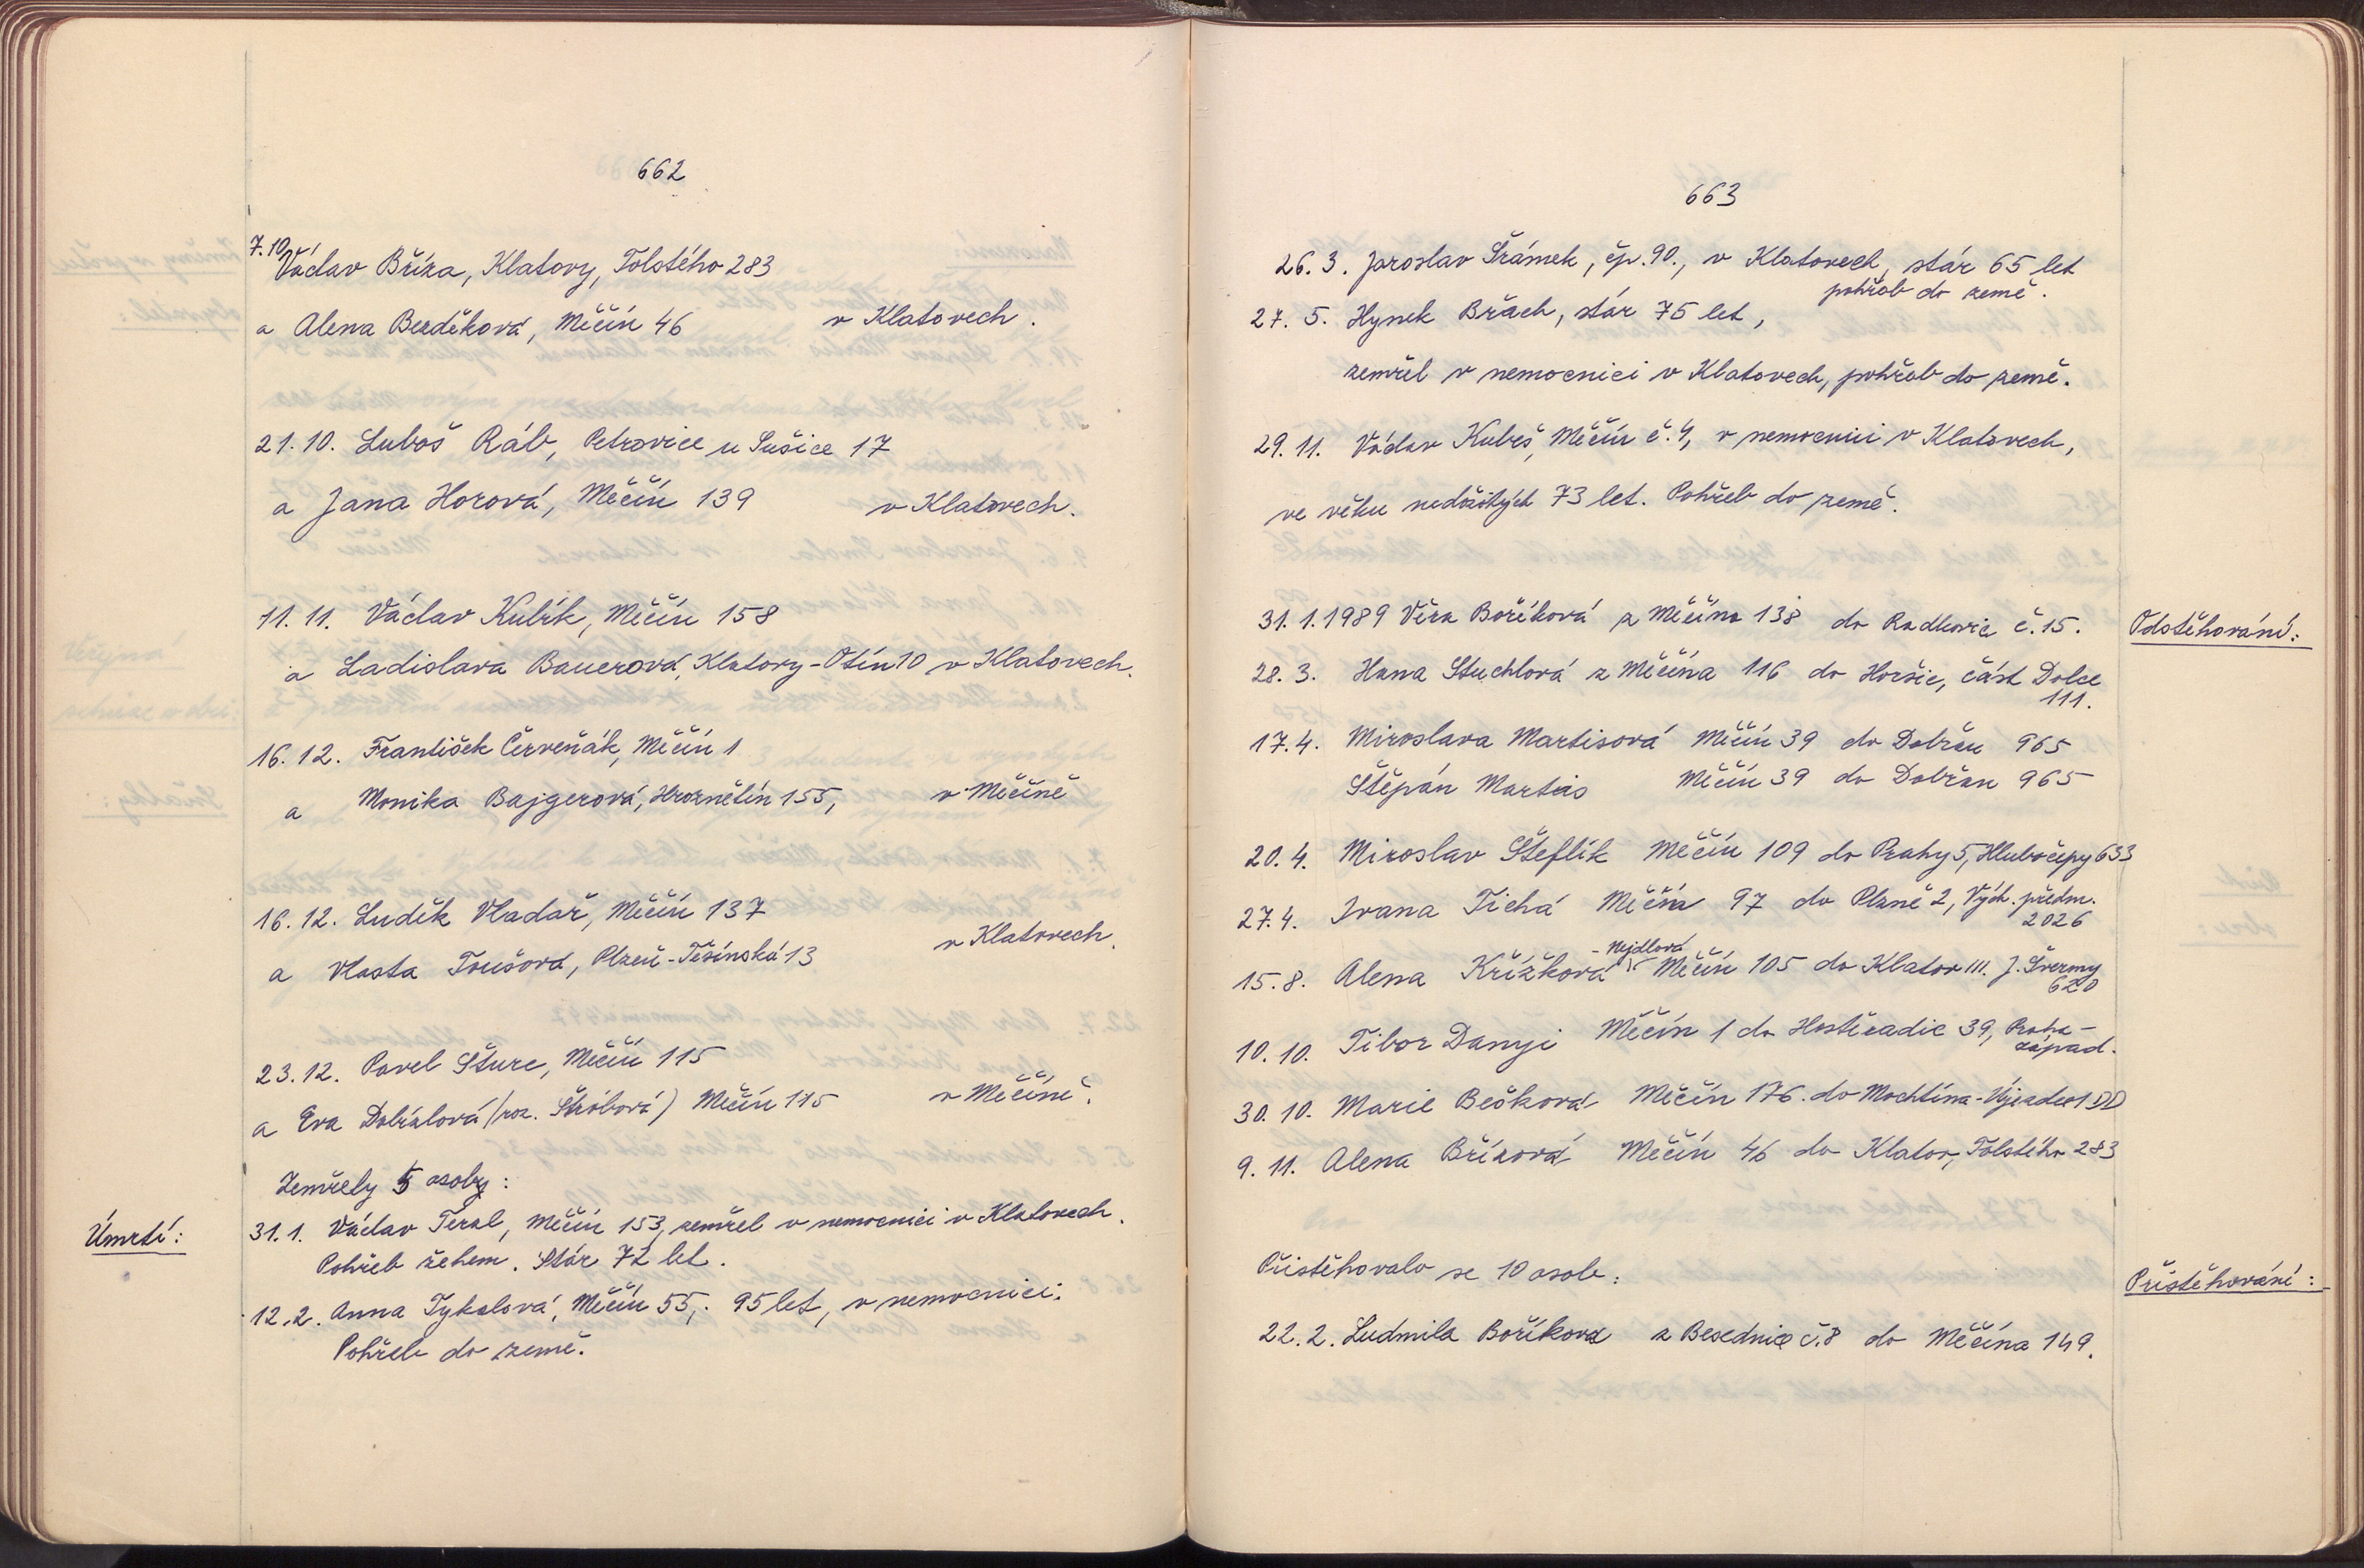 662
7.10. Václav Bříza, Klatovy, Tolstého 283
a Alena Bezděková, Měčín 46 v Klatovech.
21. 10. Luboš Ráb, Petrovice u Sušice 17
a Jana Horová, Měčín 139 v Klatovech.
11. 11. Václav Kubík, Měčín 158
a Ladislava Bauerová, Klatovy-Otín 10 v Klatovech.
16. 12. František Červeňák, Měčín 1
a Monika Bajgerová, Hroznětín 155, v Měčíně
16. 12. Luděk Vladař, Měčín 137
a Vlasta Toušová, Plzeň-Těšínská 13 v Klatovech.
23. 12. Pavel Šturc, Měčín 115
a Eva Dobialová (roz. Štróbová) Měčín 115 v Měčíně.
Zemřely 5 osoby:
Úmrtí:
31. 1. Václav Terzl, Měčín 153, zemřel v nemocnici v Klatovech.
Pohřeb žehem. Stár 72 let.
12. 2. Anna Tykalová, Měčín 55, 95 let, v nemocnici.
Pohřeb do země.
663
26. 3. Jaroslav Šrámek, čp. 90., v Klatovech, stár 65 let
pohřeb do země.
27. 5. Hynek Brach, stár 75 let,
zemřel v nemocnici v Klatovech, pohřeb do země.
29. 11. Václav Kubeš, Měčín č. 4, v nemocnici v Klatovech,
ve věku nedožitých 73 let. Pohřeb do země.
31. 1. 1989 Věra Boříková z Měčína 138 do Radkovic č. 15. Odstěhování:
28. 3. Hana Stuchlová z Měčína 116 do Horšic, část Dolce
111.
17. 4. Miroslava Martisová Měčín 39 do Dobřan 965
Štěpán Martis Měčín 39 do Dobřan 965
20. 4. Miroslav Šteflík Měčín 109 do Prahy 5, Hlubočepy 633
27. 4. Ivana Tichá Měčín 97 do Plzně 2, Vých. předm.
2026
- Nejdlová
15. 8. Alena Křížková Měčín 105 do Klatov III. J. Švermy
620
10. 10. Tibor Danyi Měčín 1 do Hostěradic 39, Praha-
západ.
30. 10. Marie Bečková Měčín 176. do Mochtína-Újezdec 1 DD
9. 11. Alena Břízová Měčín 46 do Klatov, Tolstého 283
Přistěhovalo se 10 osob: Přistěhování:
22. 2. Ludmila Boříková z Besednic č. 8 do Měčína 149.